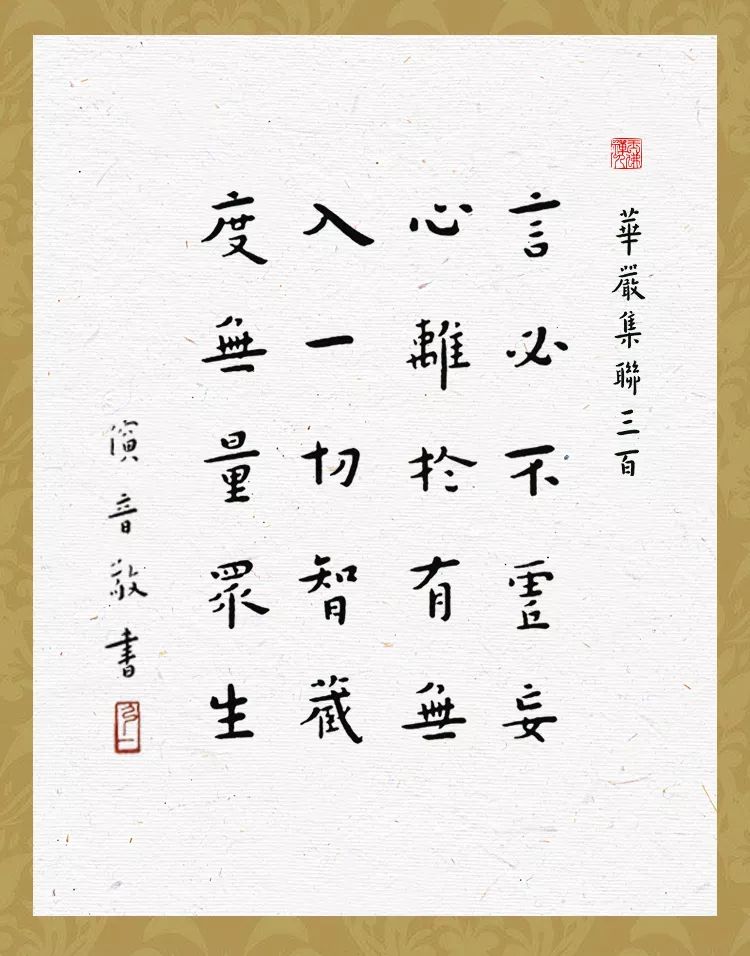 華嚴集聯三百
言必不虛妄
心離於有無
入一切智藏
度無量眾生
演音敬書
弘一